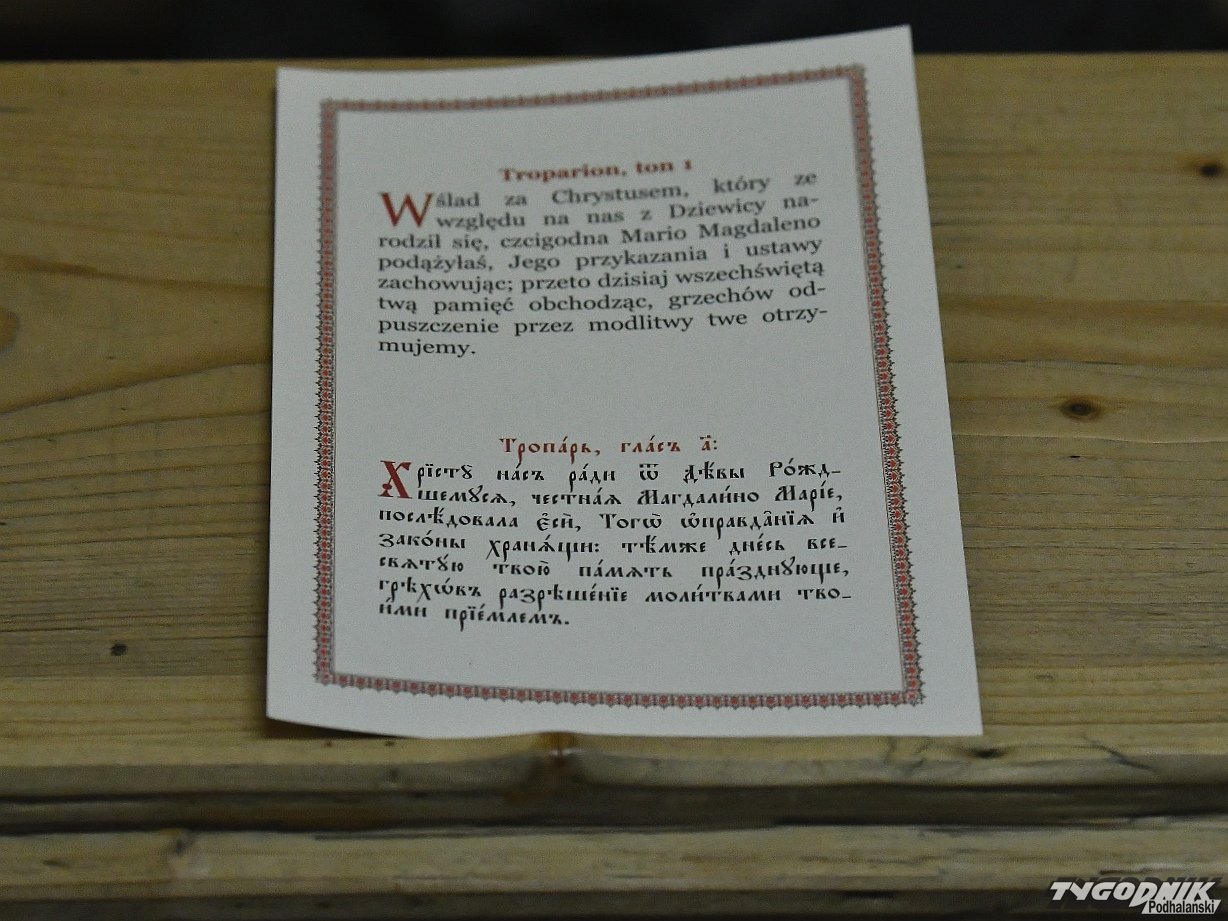 Troparion, ton 1
Wślad za Chrystusem, który ze
względu na nas z Dziewicy na-
rodził się, czcigodna Mario Magdaleno
podążyłaś, Jego przykazania i ustawy
zachowując; przeto dzisiaj wszechświętą
twą pamięć obchodząc, grzechów od-
puszczenie przez modlitwy twe otrzy-
mujemy.
Тропа́рь, гла́съ а҃:
Хрїстꙋ̀ на́съ ра́ди ѿ дѣ́вы Ро́жд-
шемꙋсѧ, честна́ѧ Магдали́но Марі́е,
послѣ́довала є҆сѝ, Тогѡ̀ ѡ҆правда̑нїѧ и҆
зако́ны хранѧ́щи: тѣ́мже дне́сь все-
свѧтꙋ́ю твою̀ па́мѧть пра́зднꙋюще,
грѣхѡ́въ разрѣше́нїе моли́твами тво-
и́ми прїе́млемъ.
TYGODNIK
Podhalański